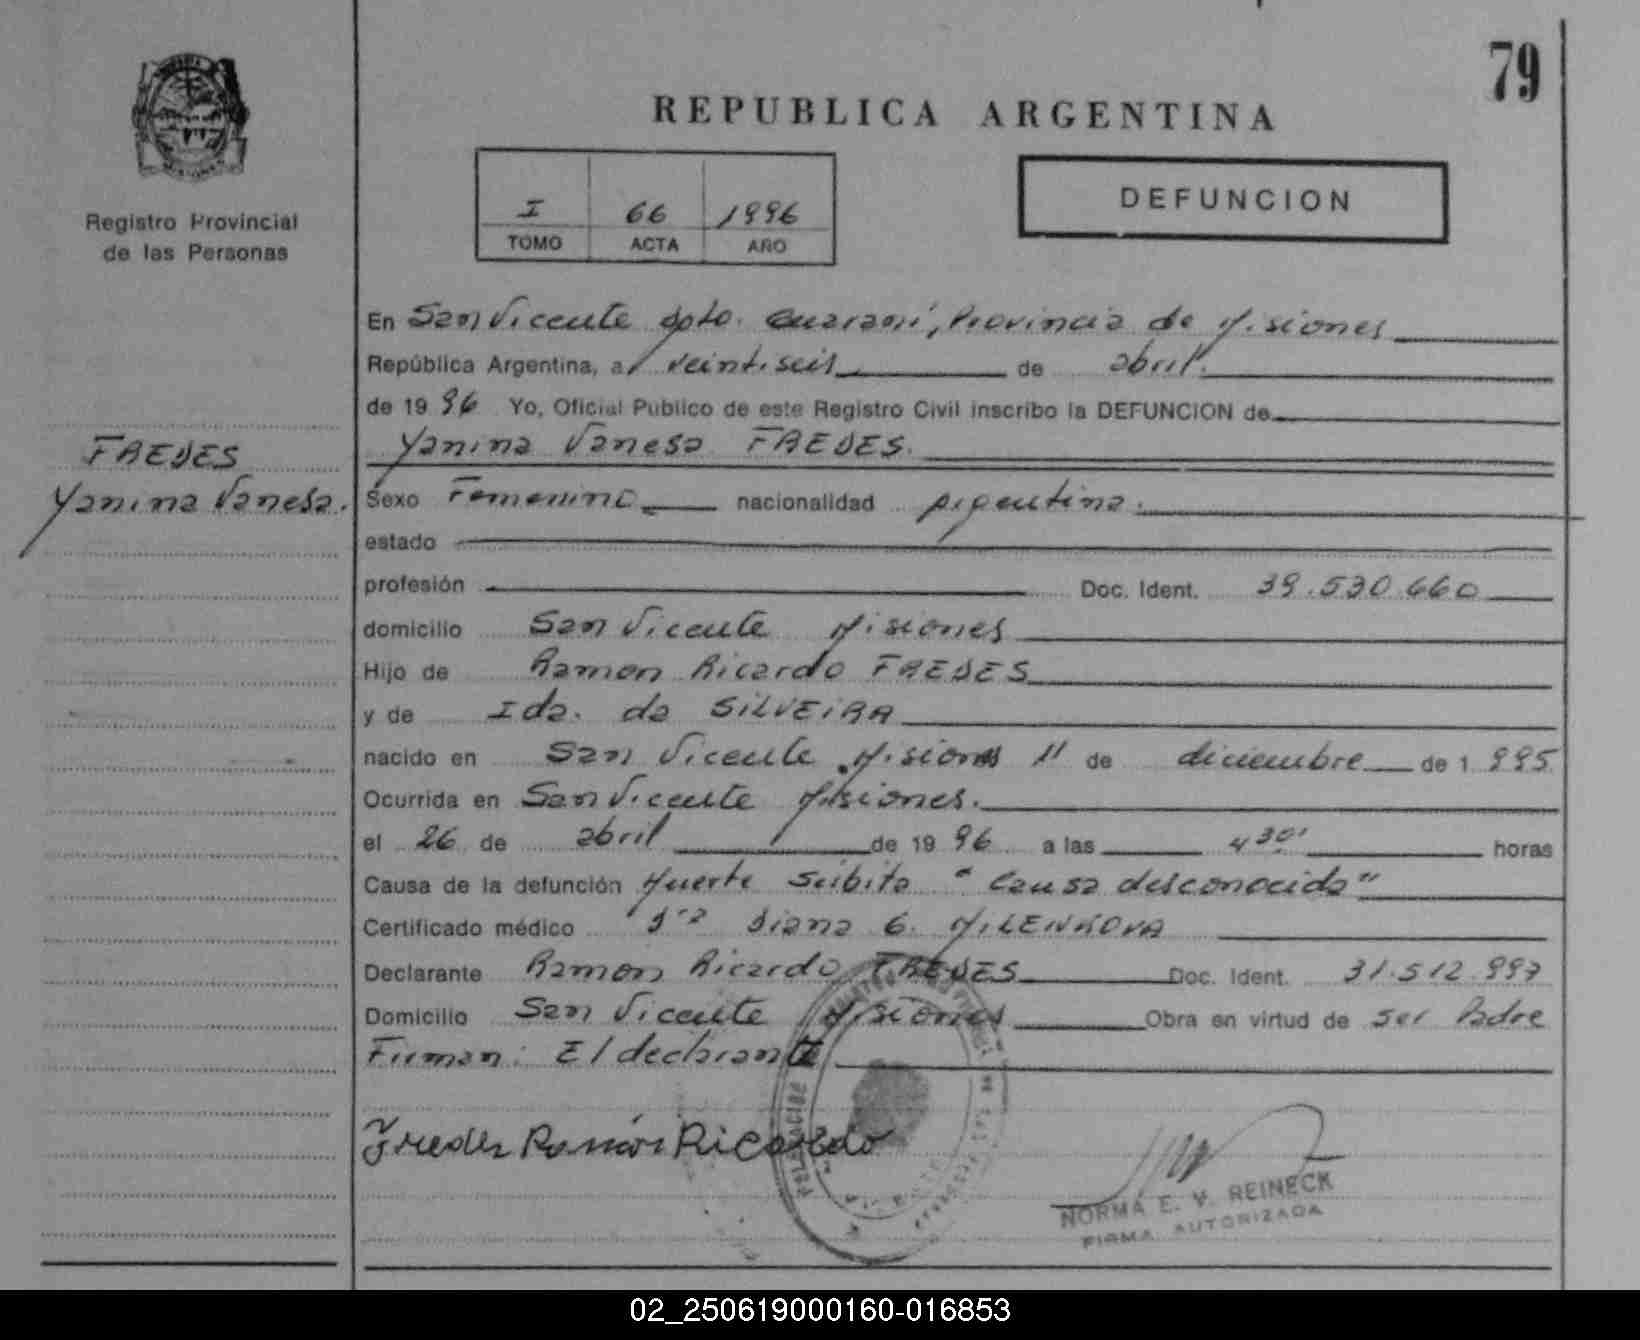 79
REPUBLICA ARGENTINA
Registro Provincial
de las Personas
I 66 1996
TOMO ACTA AÑO
DEFUNCION
En San Vicente Dpto. Guaraní, Provincia de Misiones
República Argentina, a veintiseis de abril.
de 19 96 Yo, Oficial Publico de este Registro Civil inscribo la DEFUNCION de
Yanina Vanesa FAEDES.
FAEDES
Yanina Vanesa.
Sexo Femenino nacionalidad Argentina.
estado
profesión Doc. Ident. 39.530.660
domicilio San Vicente Misiones
Hijo de Ramon Ricardo FAEDES
y de Ida. da SILVEIRA
nacido en San Vicente Misiones 11 de diciembre de 1.995
Ocurrida en San Vicente Misiones.
el 26 de abril de 19 96 a las 4 30' horas
Causa de la defunción Muerte Súbita "Causa desconocida"
Certificado médico Dra Diana G. MILENKOVA
Declarante Ramon Ricardo FAEDES Doc. Ident. 31.512.997
Domicilio San Vicente Misiones Obra en virtud de ser Padre
Firman: El declarante
Ramón Ricardo
NORMA E. V. REINECK
FIRMA AUTORIZADA
02_250619000160-016853